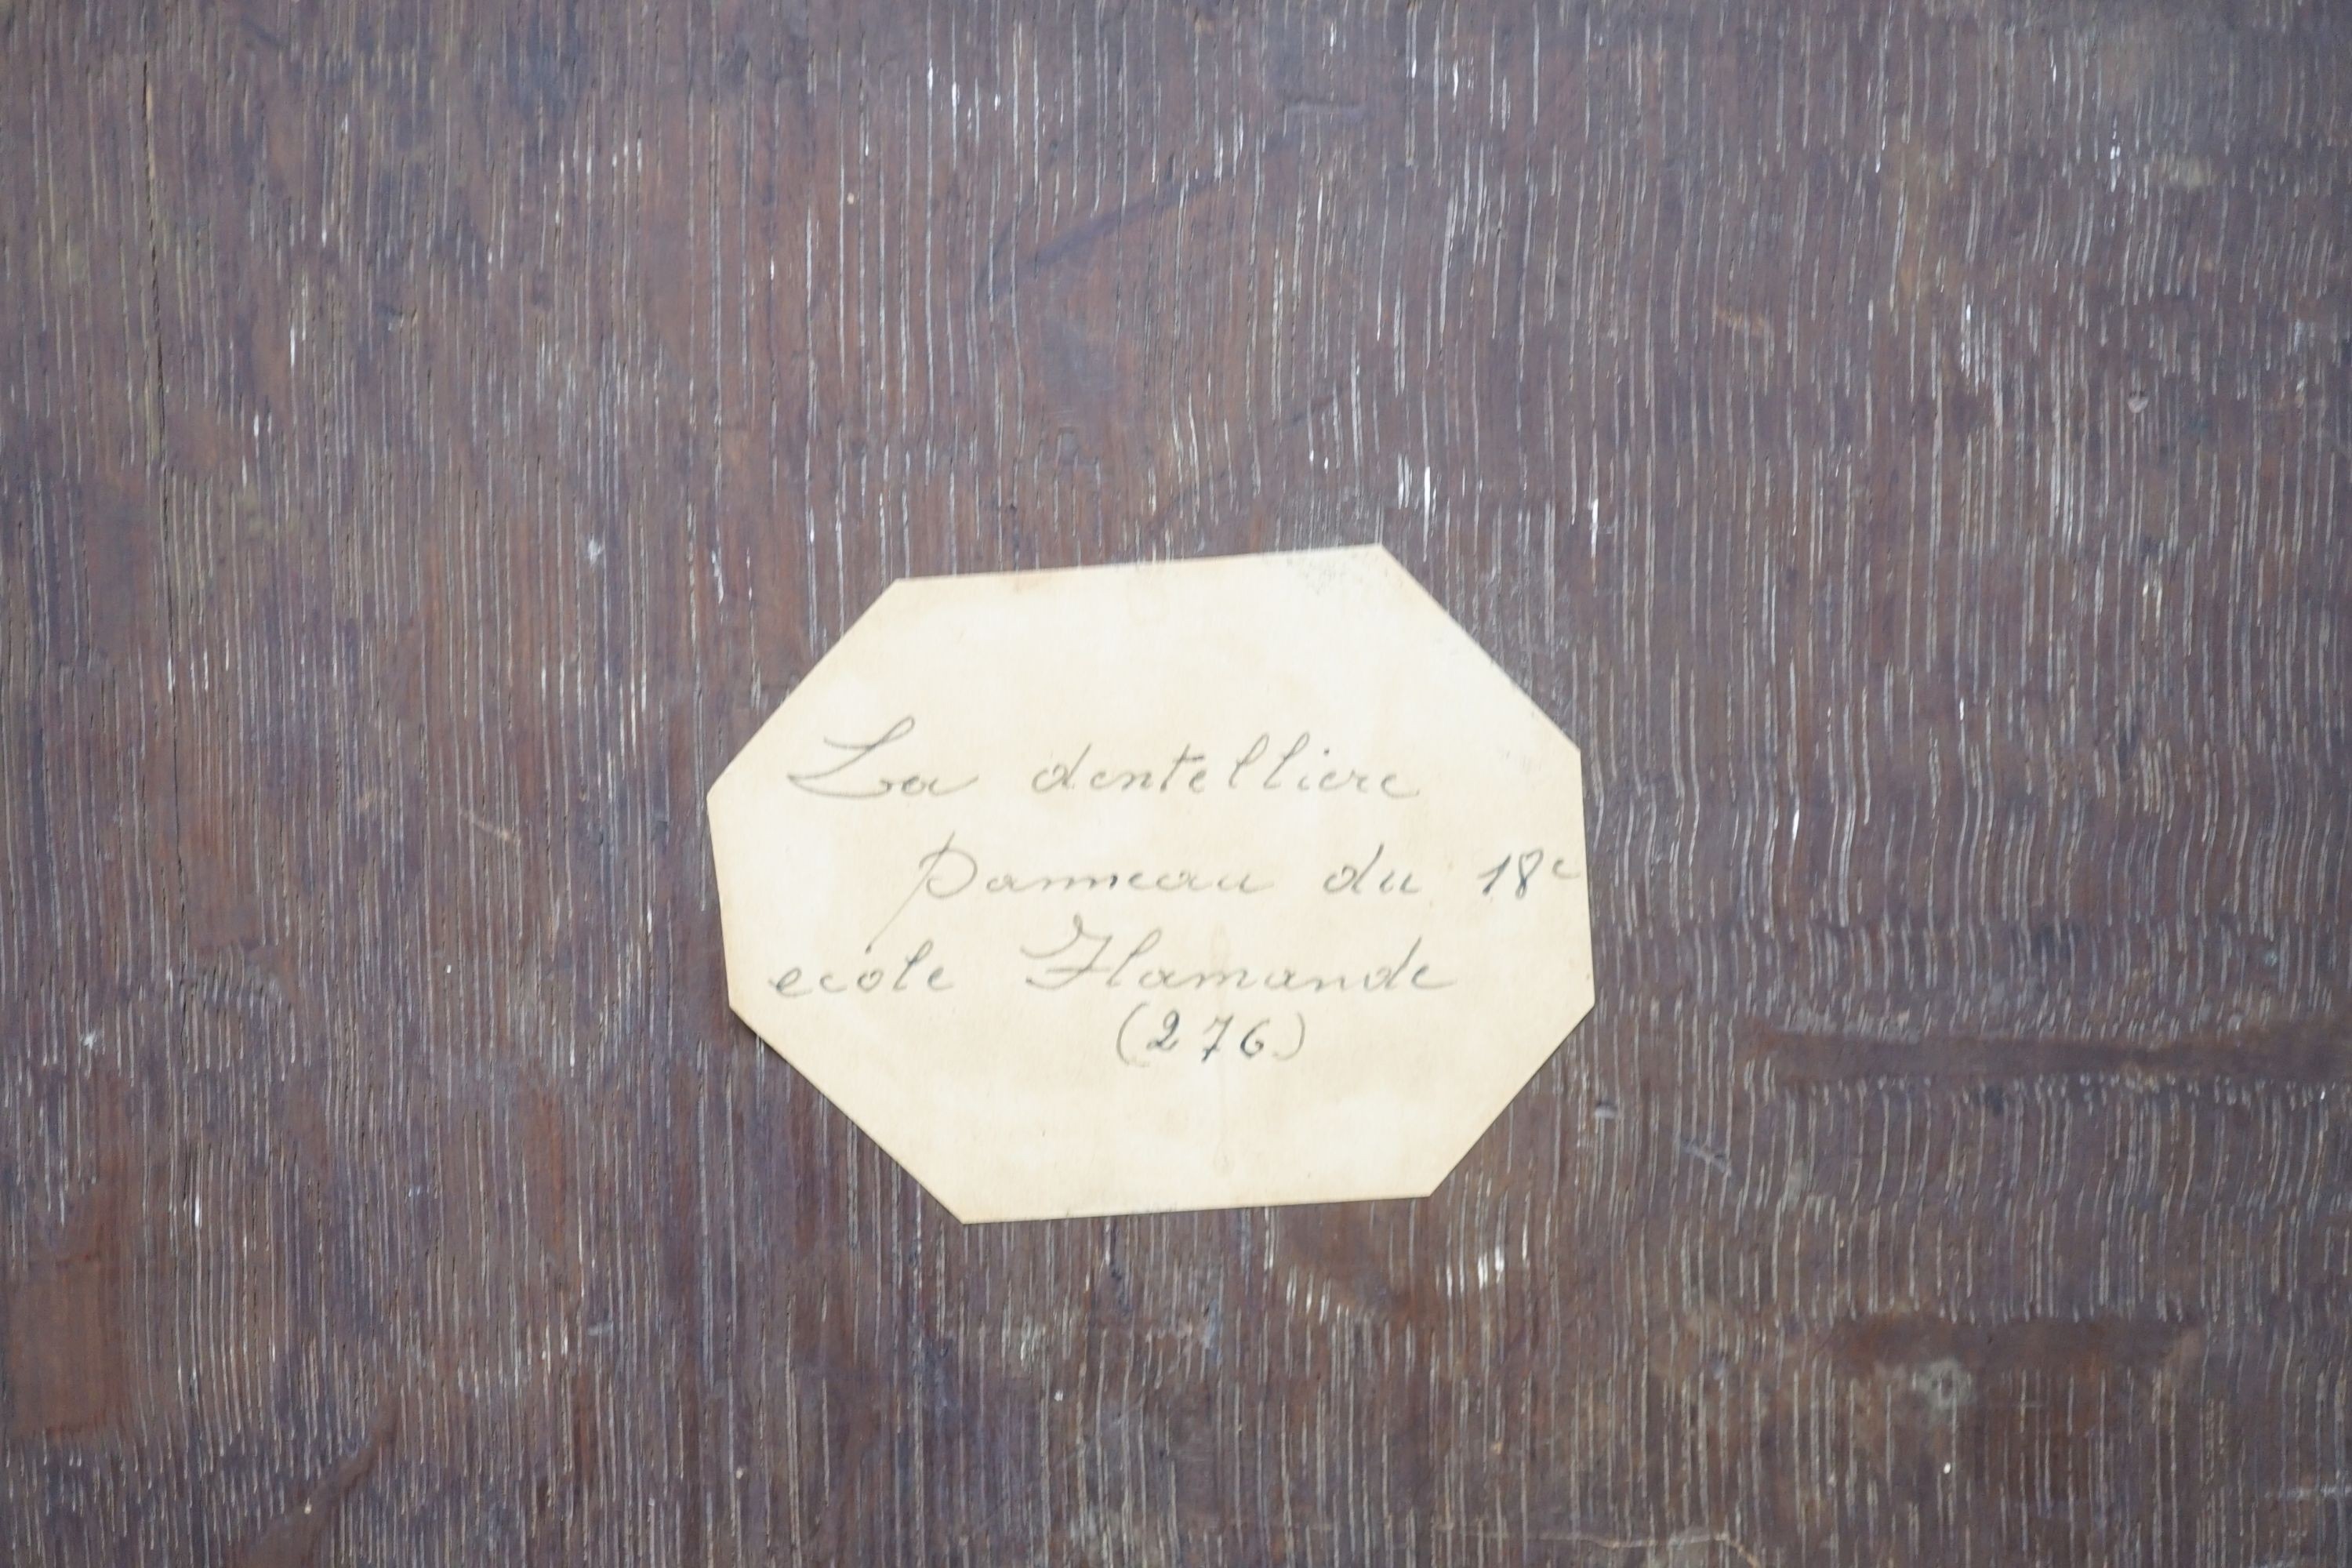 La dentelliere
panneau du 18e
ecole Flamande
(276)